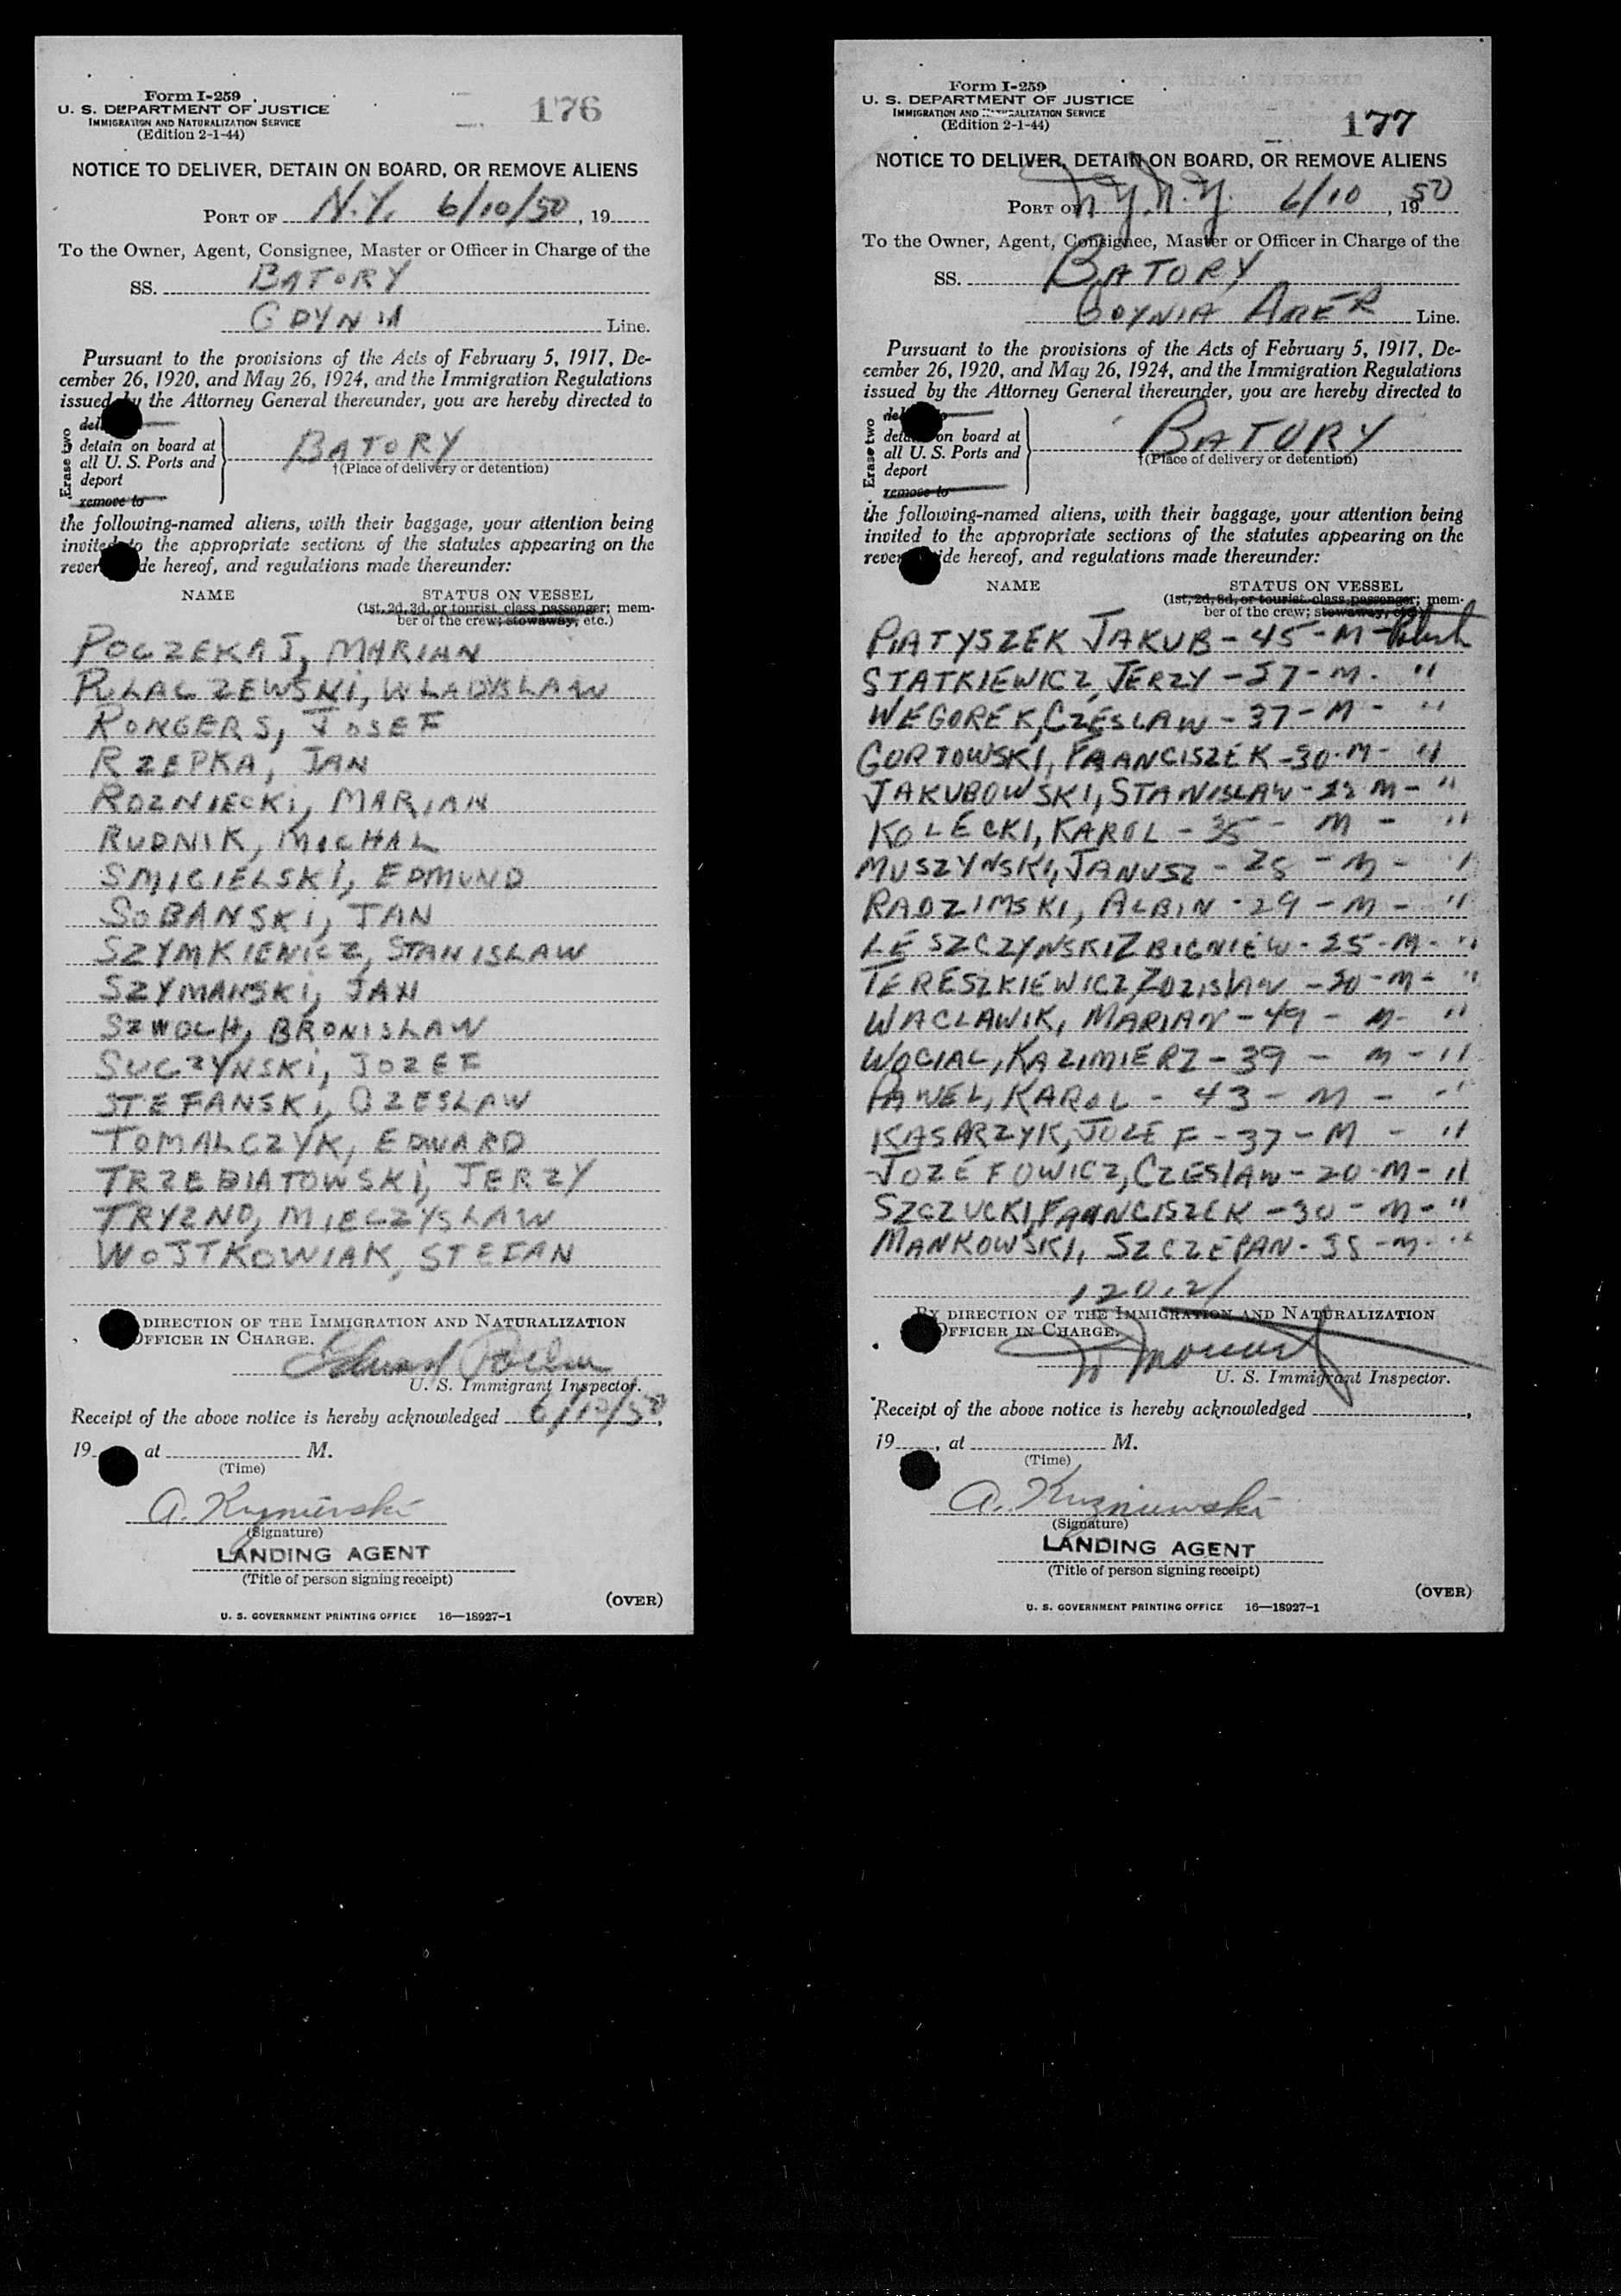 Form I-259
U. S. DEPARTMENT OF JUSTICE
IMMIGRATION AND NATURALIZATION SERVICE
(Edition 2-1-44)
176
NOTICE TO DELIVER, DETAIN ON BOARD, OR REMOVE ALIENS
PORT OF N.Y. 6/10/50, 19
To the Owner, Agent, Consignee, Master or Officer in Charge of the
SS. BATORY
GDYNIA Line.
Pursuant to the provisions of the Acts of February 5, 1917, De-
cember 26, 1920, and May 26, 1924, and the Immigration Regulations
issued by the Attorney General thereunder, you are hereby directed to
Erase two
detain on board at
all U. S. Ports and
deport
remove to
BATORY
†(Place of delivery or detention)
the following-named aliens, with their baggage, your attention being
invited to the appropriate sections of the statutes appearing on the
hereof, and regulations made thereunder:
NAME STATUS ON VESSEL
(1st, 2d, 3d, or tourist class passenger; mem-
ber of the crew; stowaway, etc.)
POCZEKAJ, MARIAN
PULACZEWSKI, WLADYSLAW
RONGERS, JOSEF
RZEPKA, JAN
ROZNIECKI, MARIAN
RUDNIK, MICHAL
SMIGIELSKI, EDMUND
SOBANSKI, JAN
SZYMKIENICZ, STANISLAW
SZYMANSKI, JAN
SZWOCH, BRONISLAW
SUCZYNSKI, JOZEF
STEFANSKI, CZESLAW
TOMALCZYK, EDWARD
TRZEBIATOWSKI, JERZY
TRYZNO, MIECZYSLAW
WOJTKOWIAK, STEFAN
DIRECTION OF THE IMMIGRATION AND NATURALIZATION
OFFICER IN CHARGE.
Edward
U. S. Immigrant Inspector.
Receipt of the above notice is hereby acknowledged 6/10/50,
19 at M.
(Time)
A.
(Signature)
LANDING AGENT
(Title of person signing receipt)
(OVER)
U. S. GOVERNMENT PRINTING OFFICE 16—18927-1
Form I-259
U. S. DEPARTMENT OF JUSTICE
IMMIGRATION AND NATURALIZATION SERVICE
(Edition 2-1-44)
177
NOTICE TO DELIVER, DETAIN ON BOARD, OR REMOVE ALIENS
PORT OF N.Y. N.Y. 6/10, 1950
To the Owner, Agent, Consignee, Master or Officer in Charge of the
SS. BATORY
GDYNIA AMER Line.
Pursuant to the provisions of the Acts of February 5, 1917, De-
cember 26, 1920, and May 26, 1924, and the Immigration Regulations
issued by the Attorney General thereunder, you are hereby directed to
Erase two
detain on board at
all U. S. Ports and
deport
remove to
BATORY
†(Place of delivery or detention)
the following-named aliens, with their baggage, your attention being
invited to the appropriate sections of the statutes appearing on the
hereof, and regulations made thereunder:
NAME STATUS ON VESSEL
(1st, 2d, 3d, or tourist class passenger; mem-
ber of the crew; stowaway, etc.)
PIATYSZEK JAKUB - 45 - M - Polish
STATKIEWICZ, JERZY - 37 - M. "
WEGOREK, CZESLAW - 37 - M - "
GORTOWSKI, FRANCISZEK - 30 - M - "
JAKUBOWSKI, STANISLAW - M - "
KOLECKI, KAROL - 35 - M - "
MUSZYNSKI, JANUSZ - 25 - M - "
RADZIMSKI, ALBIN - 29 - M - "
LESZCZYNSKI ZBIGNIEW - 25 - M - "
TERESZKIEWICZ, ZDZISLAW - 30 - M - "
WACLAWIK, MARIAN - 49 - M - "
WOCIAL, KAZIMIERZ - 39 - M - "
PAWEL, KAROL - 43 - M - "
KASARZYK, JOZEF - 37 - M - "
JOZEFOWICZ, CZESLAW - 20 - M - "
SZCZUCKI, FRANCISZEK - 30 - M - "
MANKOWSKI, SZCZEPAN - 35 - M - "
120.21
BY DIRECTION OF THE IMMIGRATION AND NATURALIZATION
OFFICER IN CHARGE.
U. S. Immigrant Inspector.
Receipt of the above notice is hereby acknowledged ,
19 , at M.
(Time)
A. Kuzniewski
(Signature)
LANDING AGENT
(Title of person signing receipt)
(OVER)
U. S. GOVERNMENT PRINTING OFFICE 16—18927-1